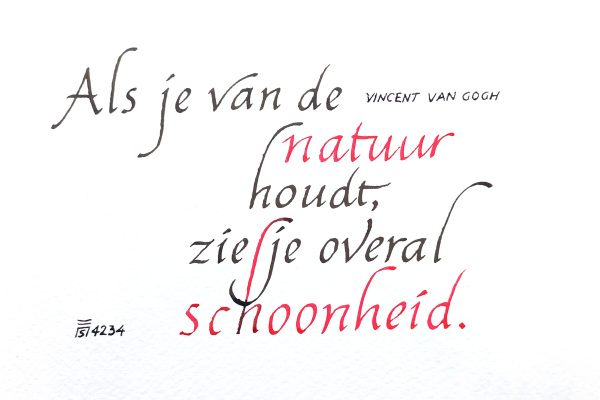 Als je van de
VINCENT VAN GOGH
natuur
houdt,
zie je overal
schoonheid.
4234